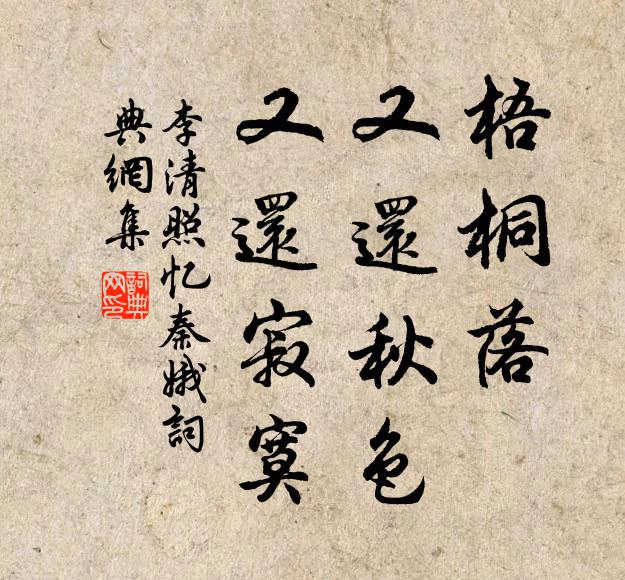 梧桐落
又還秋色
又還寂寞
李清照忆秦娥詞
典網集
詞典
网印